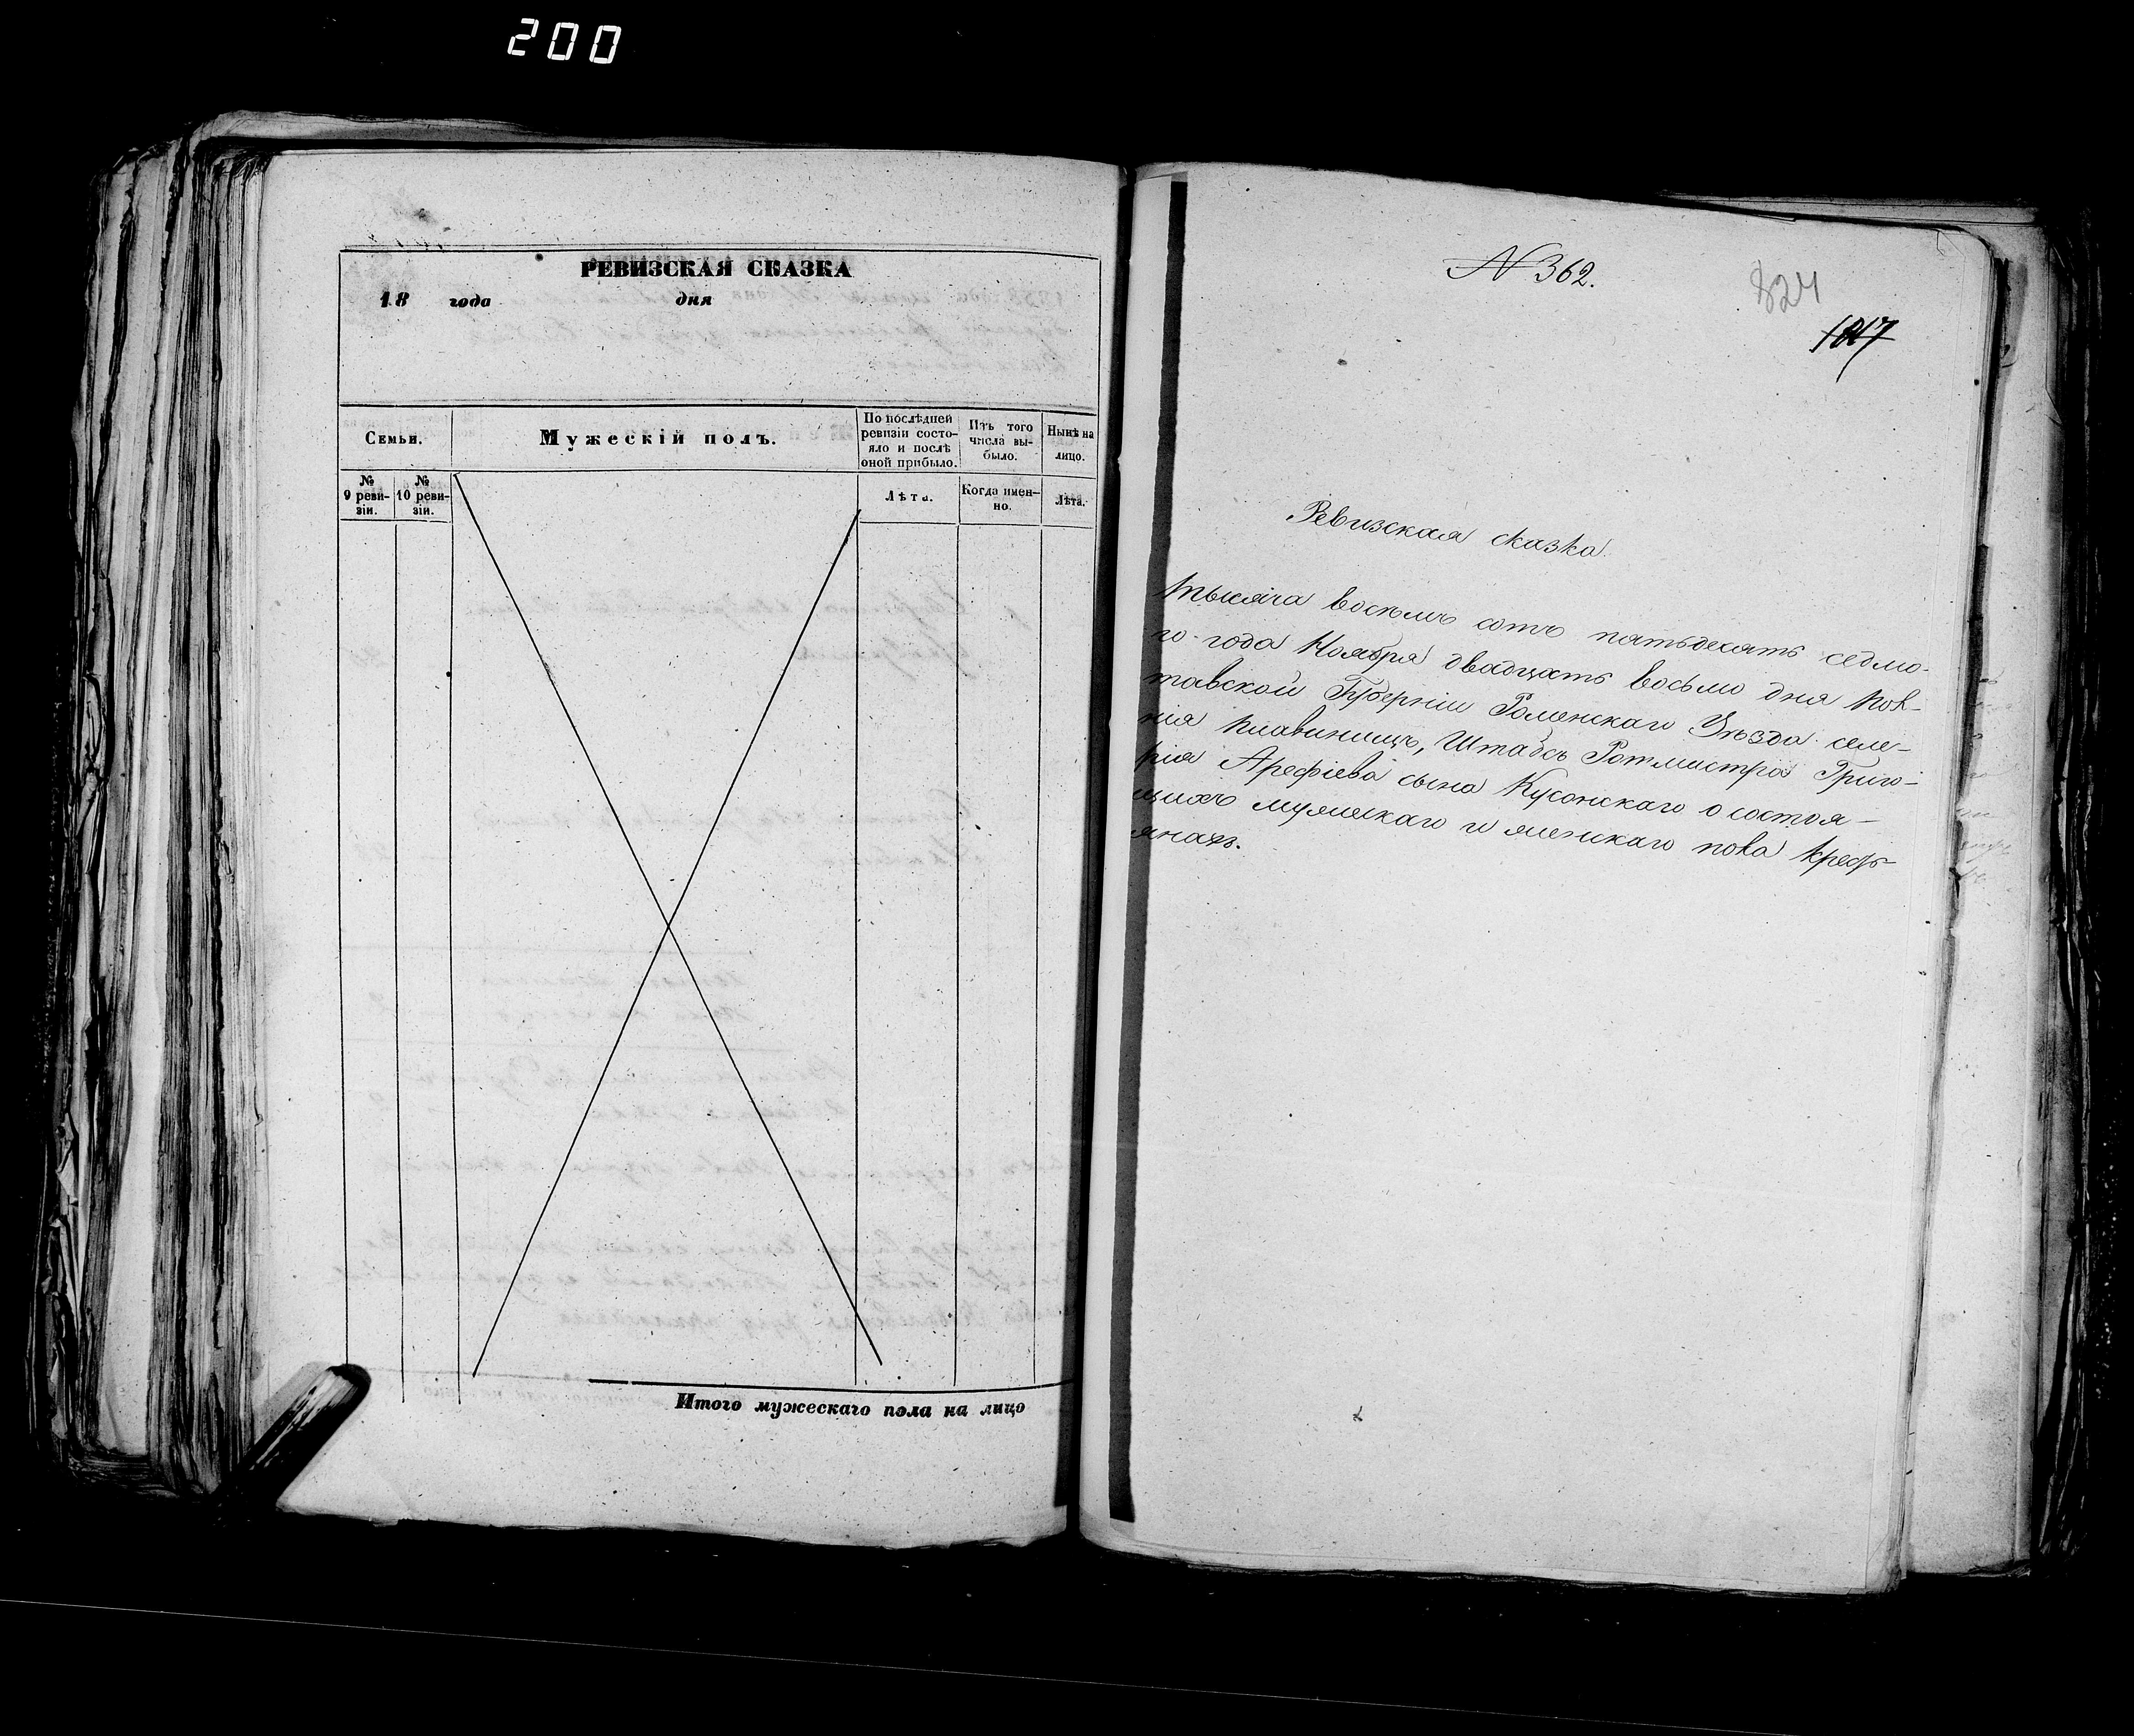 200
РЕВИЗСКАЯ СКАЗКА
18 года дня
Семьи.
Мужескій полъ.
По послѣдней ревизіи состо-
яло и послѣ
оной прибыло.
Изъ того
числа вы-
было.
Нынѣ на
лицо.
№
9 реви-
зіи.
№
10 реви-
зій.
Лѣта.
Когда имен-
но.
Лѣта.
Итого мужескаго пола на лицо
N 362.
824
Ревизская сказка.
Тысяча восемъ сотъ пятьдесятъ седмо-
го года Ноября двадцать восьмо дня Пол-
тавской Губерніи Роменскаго Уѣзда селе-
нія Плавинищъ, Штабсъ Ротмистра Григо-
рія Арефіева сына Кусонскаго о состоя-
щихъ мужескаго и женскаго пола кресть-
янахъ.